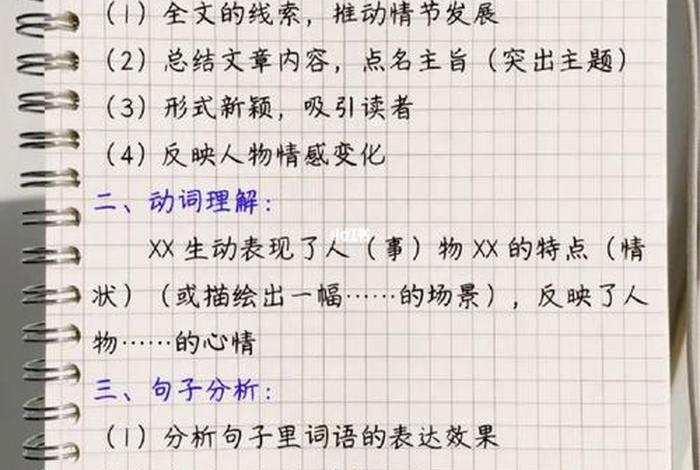 （1）全文的线索，推动情节发展
（2）总结文章内容，点名主旨（突出主题）
（3）形式新颖，吸引读者
（4）反映人物情感变化
二、动词理解：
XX 生动表现了人（事）物 XX 的特点（情
状）（或描绘出一幅……的场景），反映了人
物……的心情
三、句子分析：
（1）分析句子里词语的表达效果